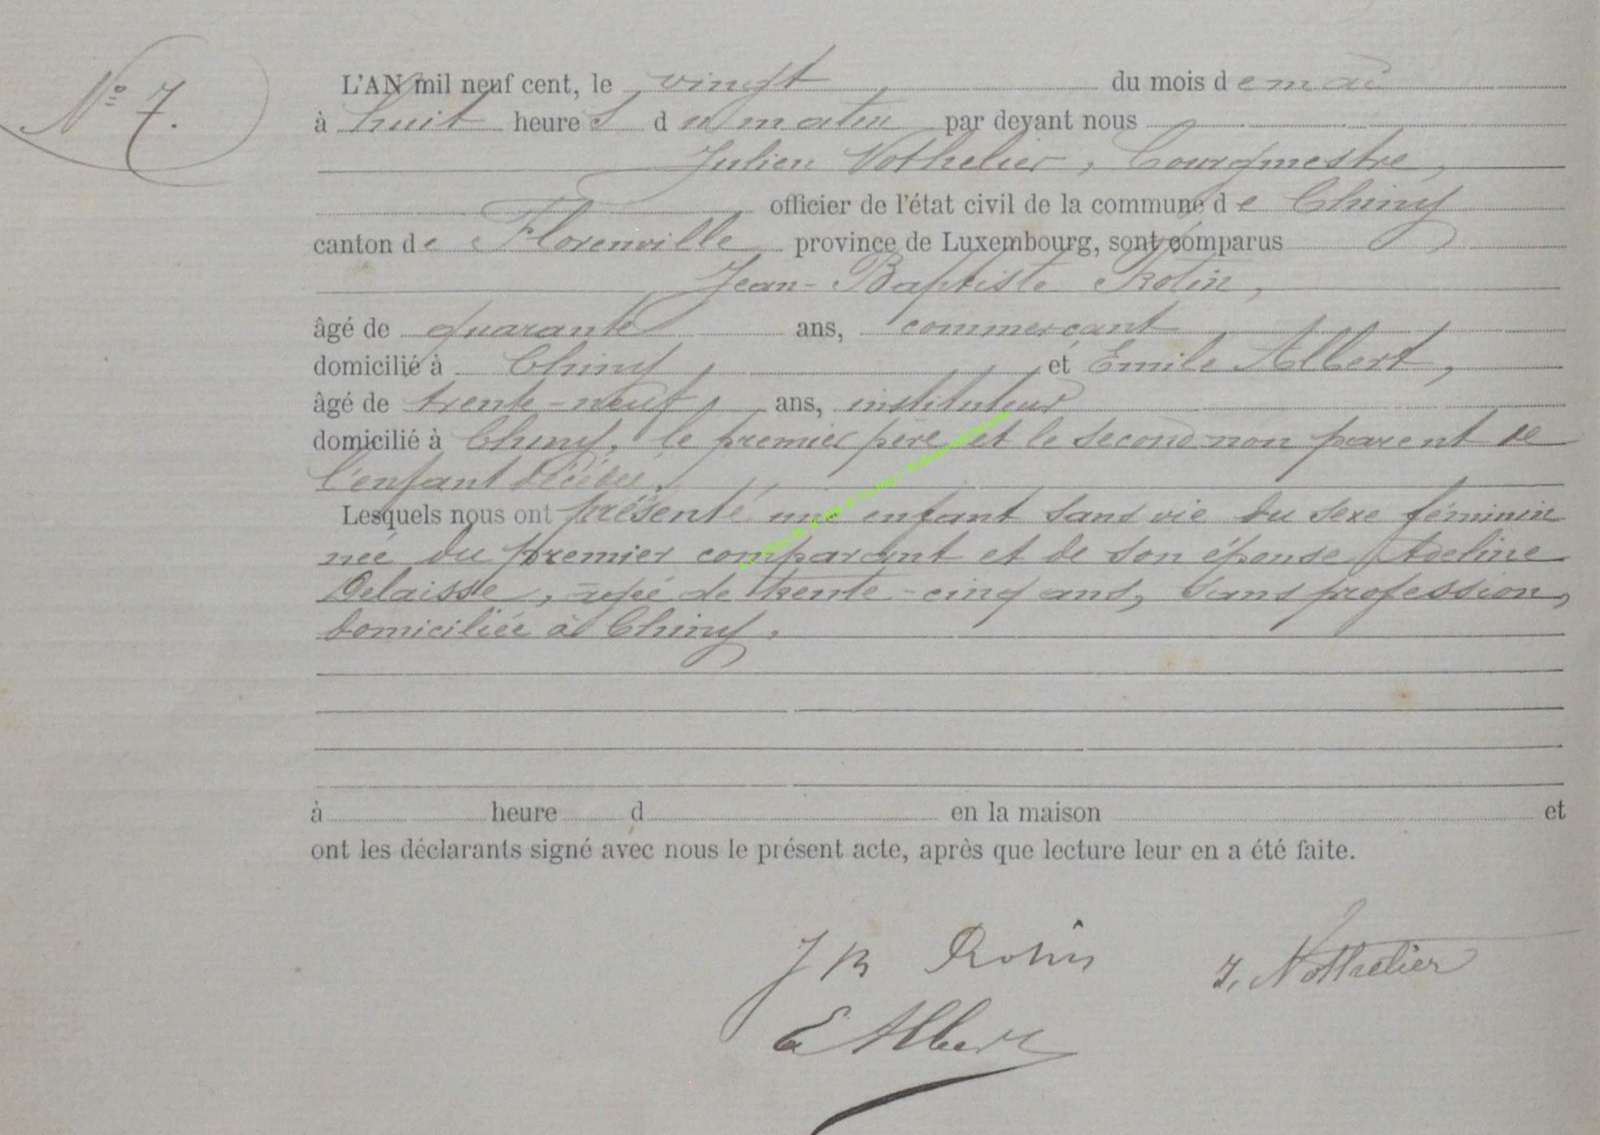 N° 7.
L'AN mil neuf cent, le vingt du mois de mai
à huit heures du matin par devant nous
Julien Nothelier, bourgmestre,
officier de l'état civil de la commune de Chiny
canton de Florenville province de Luxembourg, sont comparus
Jean-Baptiste Robin,
âgé de quarante ans, commerçant
domicilié à Chiny, et Emile Albert,
âgé de trente-neuf, ans, instituteur
domicilié à Chiny, le premier père et le second non parent de
l'enfant décédé.
Lesquels nous ont présenté une enfant sans vie du sexe féminin
née du premier comparant et de son épouse Adeline
Delaisse, âgée de trente-cinq ans, sans profession,
domiciliée à Chiny.
à heure d en la maison et
ont les déclarants signé avec nous le présent acte, après que lecture leur en a été faite.
J B Robin J. Nothelier
E Albert